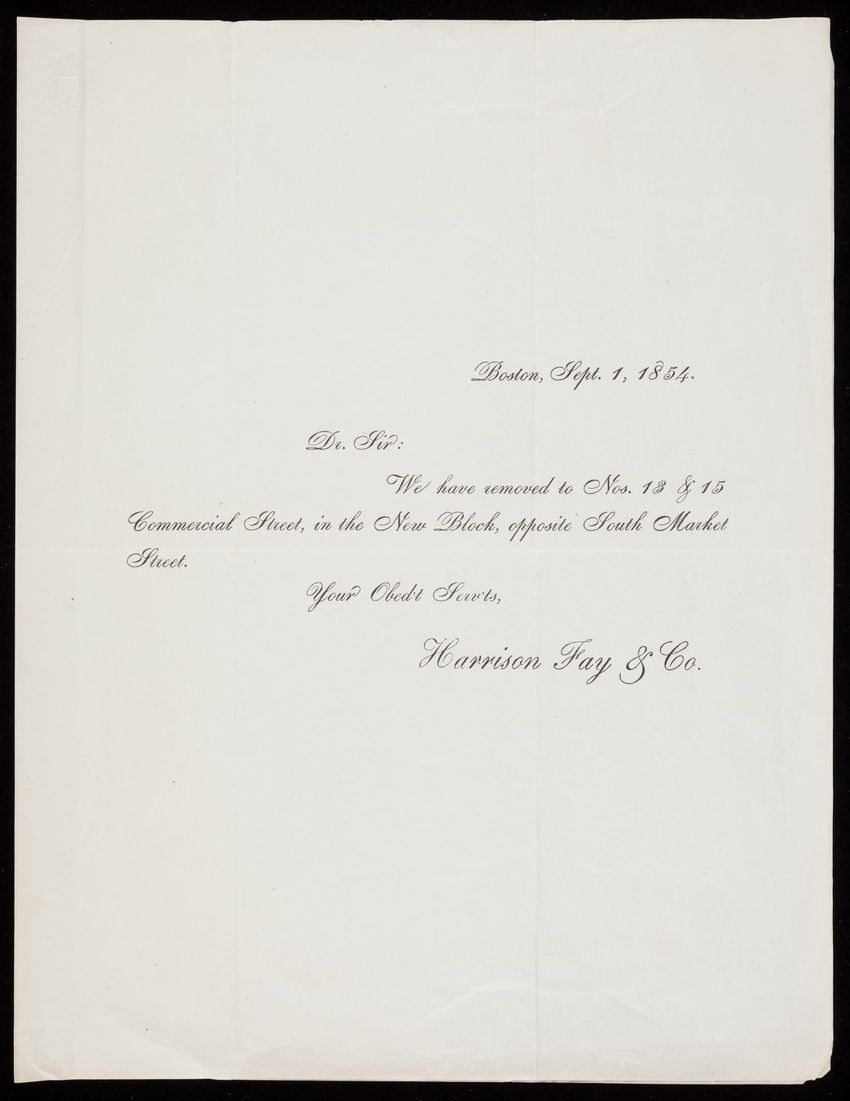 Boston, Sept. 1, 1854.
Dr. Sir:
We have removed to Nos. 13 & 15
Commercial Street, in the New Block, opposite South Market
Street.
Your Obed't Serv'ts,
Harrison Fay & Co.